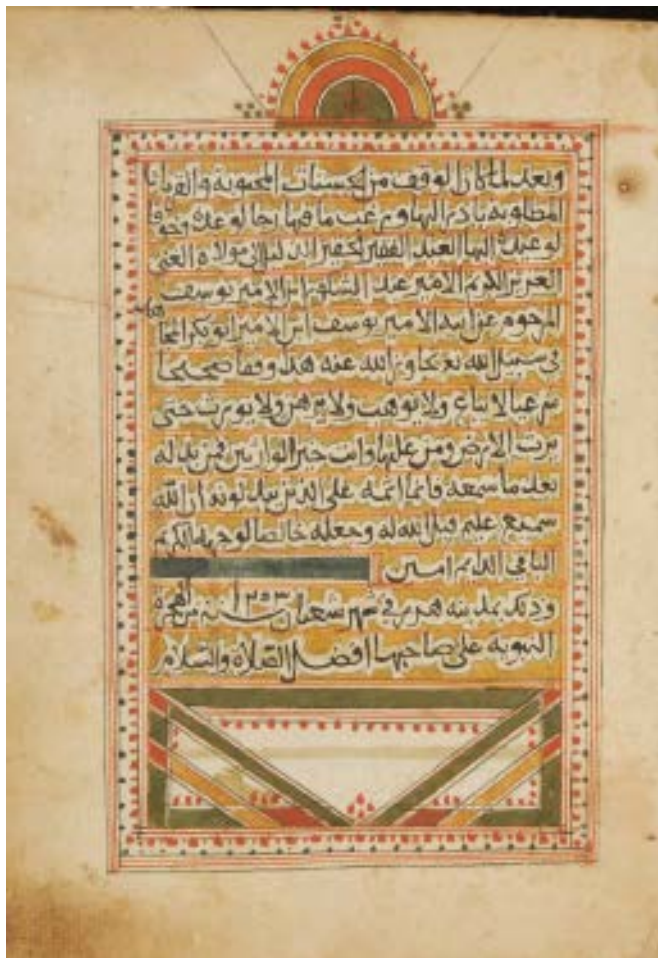 وبعد لما كان الوقف من الحسنات المحبوبة والقربات
المطلوبة بادر اليها ورغب ما فيها رجا لوعده وخوفا
لوعيده اليها العبد الفقير الحقير الذليل الى مولاه الغني
العزيز الكريم الامير عبد الشكور ابن الامير يوسف
المرحوم عن ابيه الامير يوسف ابن الامير ابو بكر
في سبيل الله تعا تجاوز الله عنه هذا وقفا صحيحا
شرعيا لا يباع ولا يوهب ولا يرهن ولا يورث حتى
يرث الارض ومن عليها وانت خير الوارثين فمن بدله
بعد ما سمعه فانما اثمه على الذين يبدلونه ان الله
سميع عليم قبل الله له وجعله خالصا لوجهه الكريم
الباقي الدايم امين
وذلك بمدينه هرر في شهر شعبان سنة ١٢٠٣ من الهجرة
النبوية على صاحبها افضل الصلاة والسلام